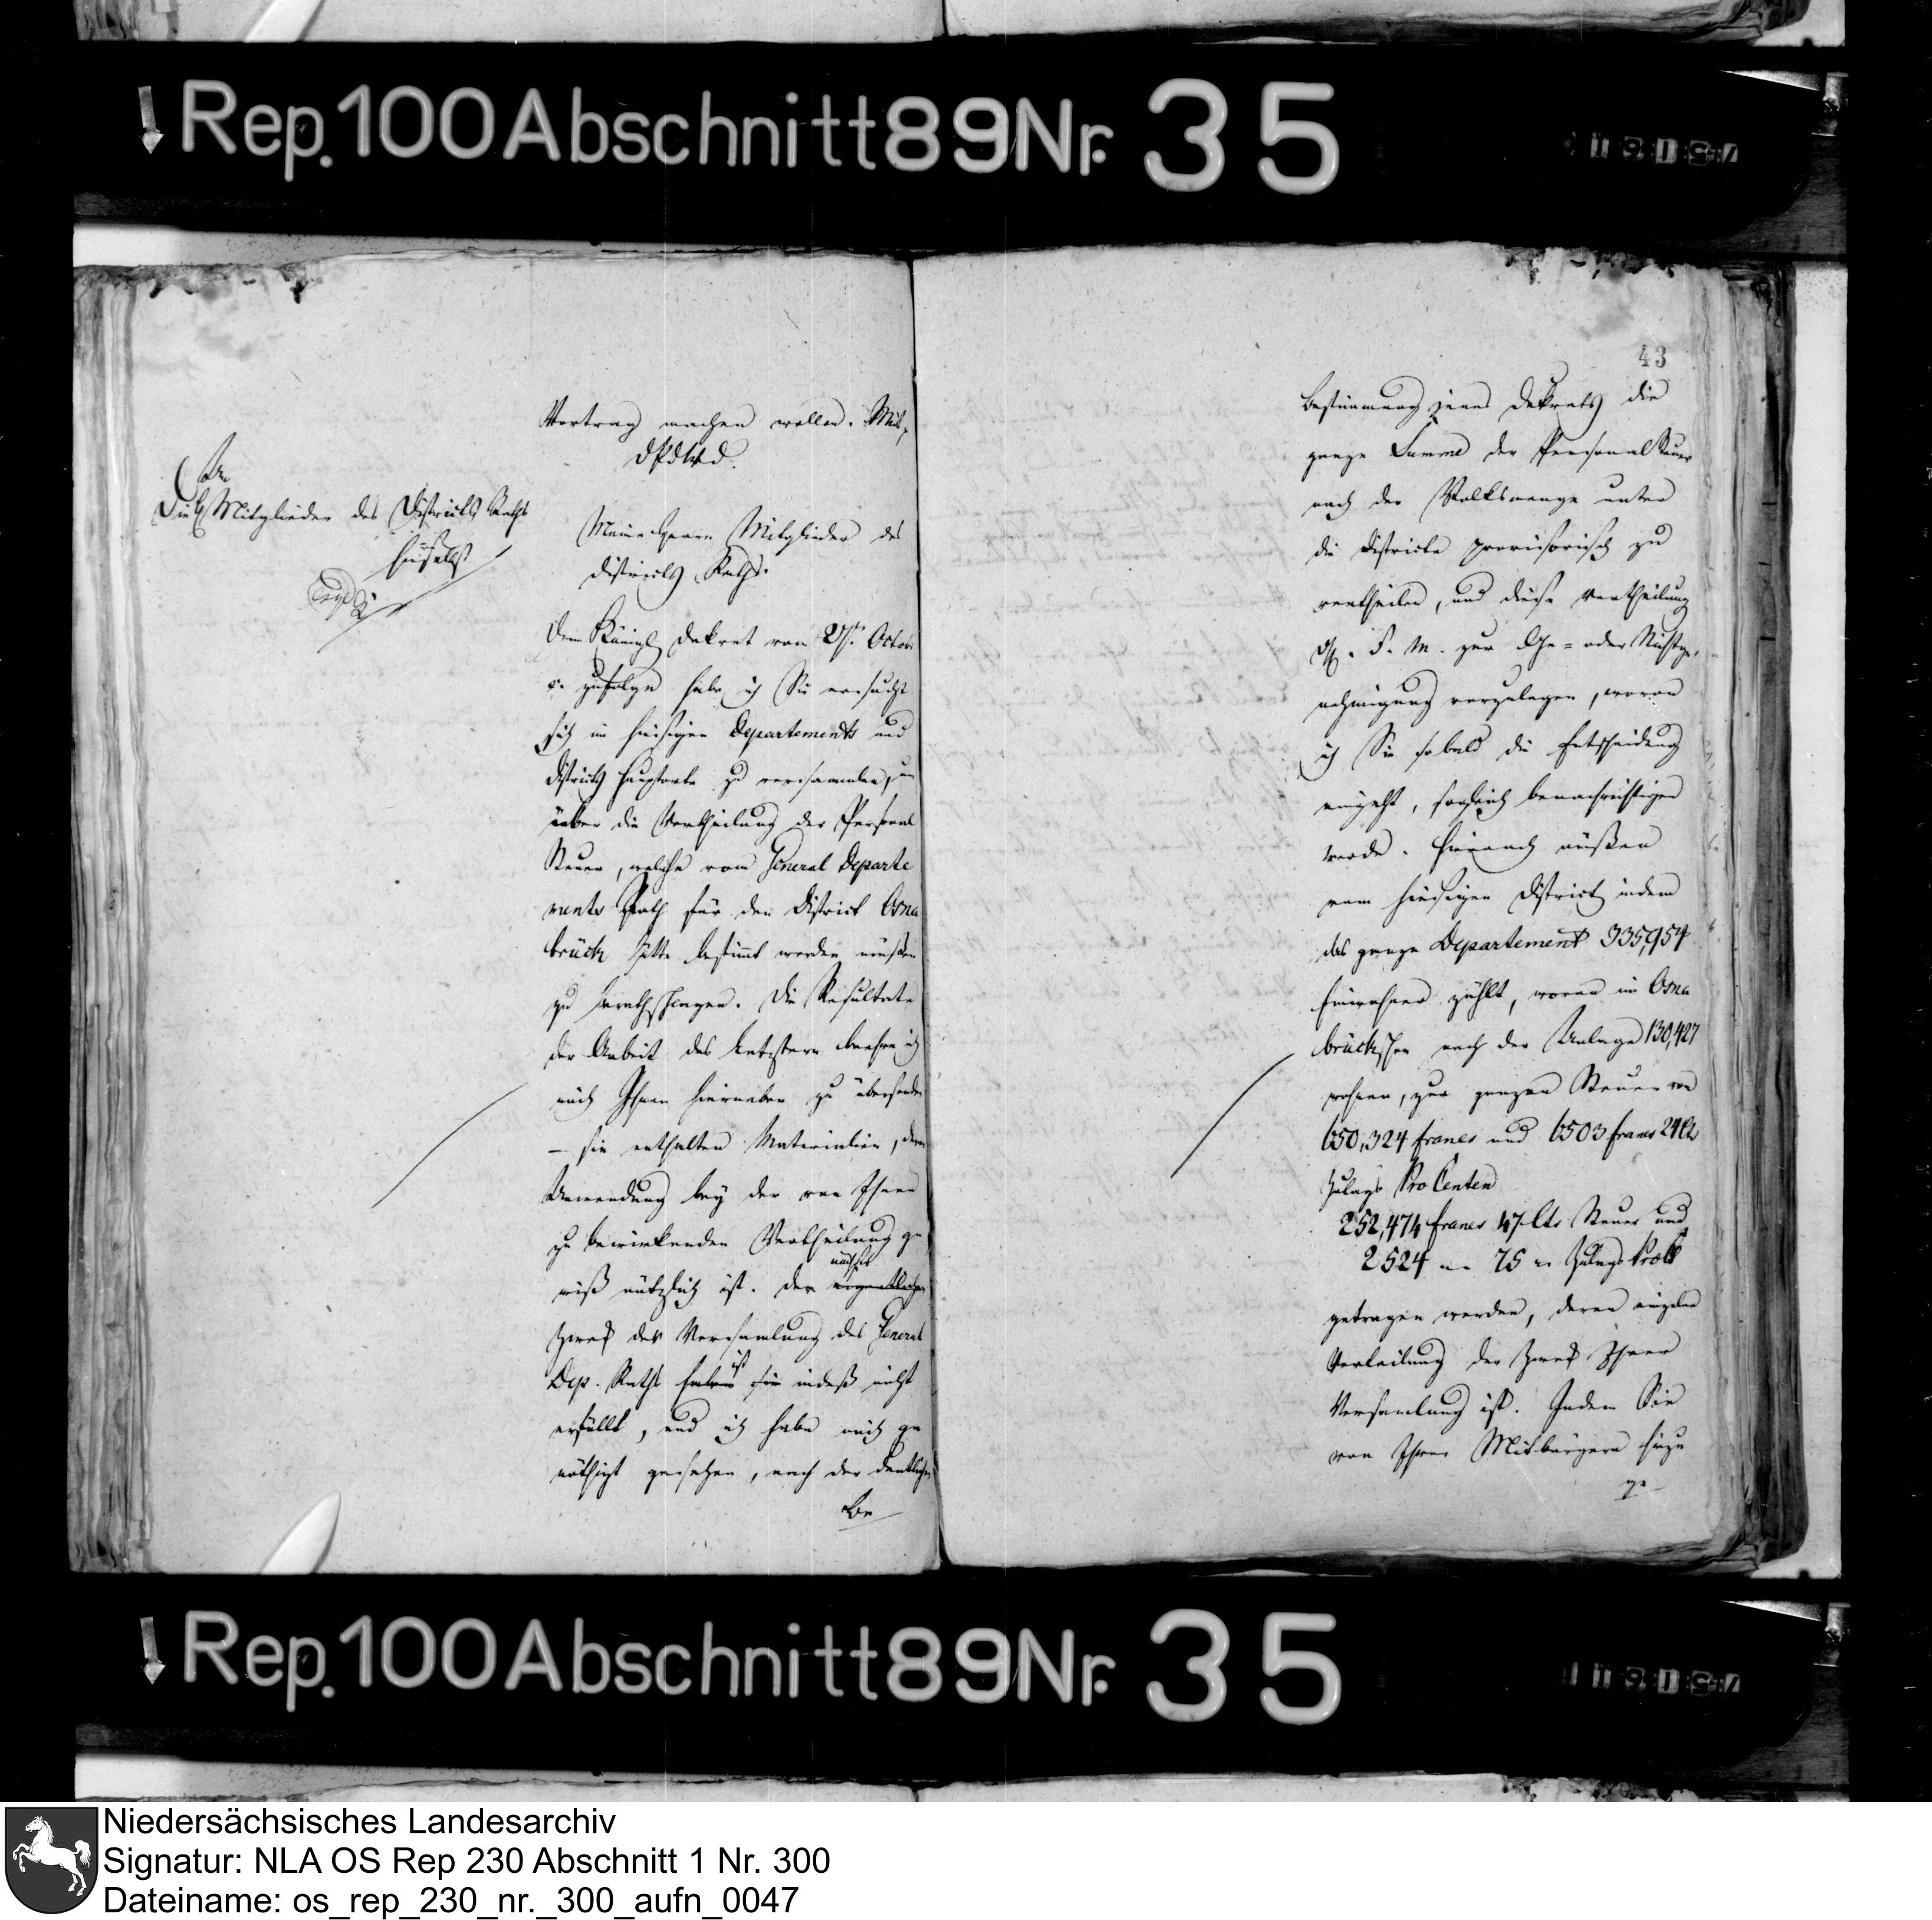 Rep. 100 Abschnitt 89 Nr. 35
Vortrag machen wollen. Mit
An
Die H Mitglieder des Districts Raths
hieselbst
Meine Herrn Mitglieder des
Districts Raths.
Dem Königl Dekret vom 27t Octob
c. zufolge habe ich Sie ersucht
sich im hiesigen Departements und
Districts Hauptorte zu versammlen, um
über die Vertheilung der Personal
Steuer, welche vom General Departe
ments Rath für den District Osna
brück hätte bestimmt werden müßen
zu berathschlagen. Die Resultate
der Arbeit des Letztern beehre ich
mich Ihnen hierneben zu übersenden
– sie enthalten Materialien, deren
Anwendung bey der von Ihnen
zu bewirkenden Vertheilung ge
nächste
wiß nützlich ist. Der eigentliche
Zweck der Versamlung des General
ist
Dep. Raths haben sie indeß nicht
erfüllt, und ich habe mich ge
nöthigt gesehen, nach der deutlichen
Be
43
Bestimmung jenes Dekrets die
ganze Summe der Personal Steuer
nach der Volksmenge unter
die Districte provisorisch zu
vertheilen, und diese Vertheilung
F. M. zur Ge= oder Nichtge,
nehmigung vorzulegen, wovon
ich Sie sobald die Entscheidung
eingeht, sogleich benachrichtigen
werde. Hiernach müßen
vom hiesigen District indem
das ganze Departement 335,954
Einwohner zählt, wovon im Osna
brückschen nach der Anlage 130,427
wohnen, zur ganzen Steuer von
650,324 francs und 6503 francs 24 Cts
Zulags Pro Centen
252,474 francs 47 Cts Steuer und
2524 – 75 – Zulags ProC
getragen werden, deren einzelne
Verteilung der Zweck Ihrer
Versamlung ist. Indem Sie
von Ihren Mitbürgern hiezu
ge
Rep. 100 Abschnitt 89 Nr. 35
Niedersächsisches Landesarchiv
Signatur: NLA OS Rep 230 Abschnitt 1 Nr. 300
Dateiname: os_rep_230_nr._300_aufn_0047